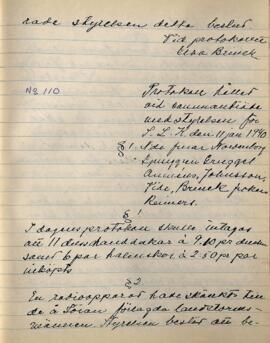 rade styrelsen detta beslut
Vid protokollet
Elsa Brinck
No 110
Protokoll hållet
vid sammanträde
med styrelsen för
S. L. K. den 11 jan 1940
§ 1. Nde fruar
Johnsson,
Brinck fröken
Reimers.
§
I dagens protokoll skulle intagas
att 11 duss handdukar à 9.10 pr duss
samt 6 par à 2.50 pr par
inköpts
§ 2.
En radioapparat hade skänkts till
de å förlagda landstorms-
männen. Styrelsen beslöt att be-